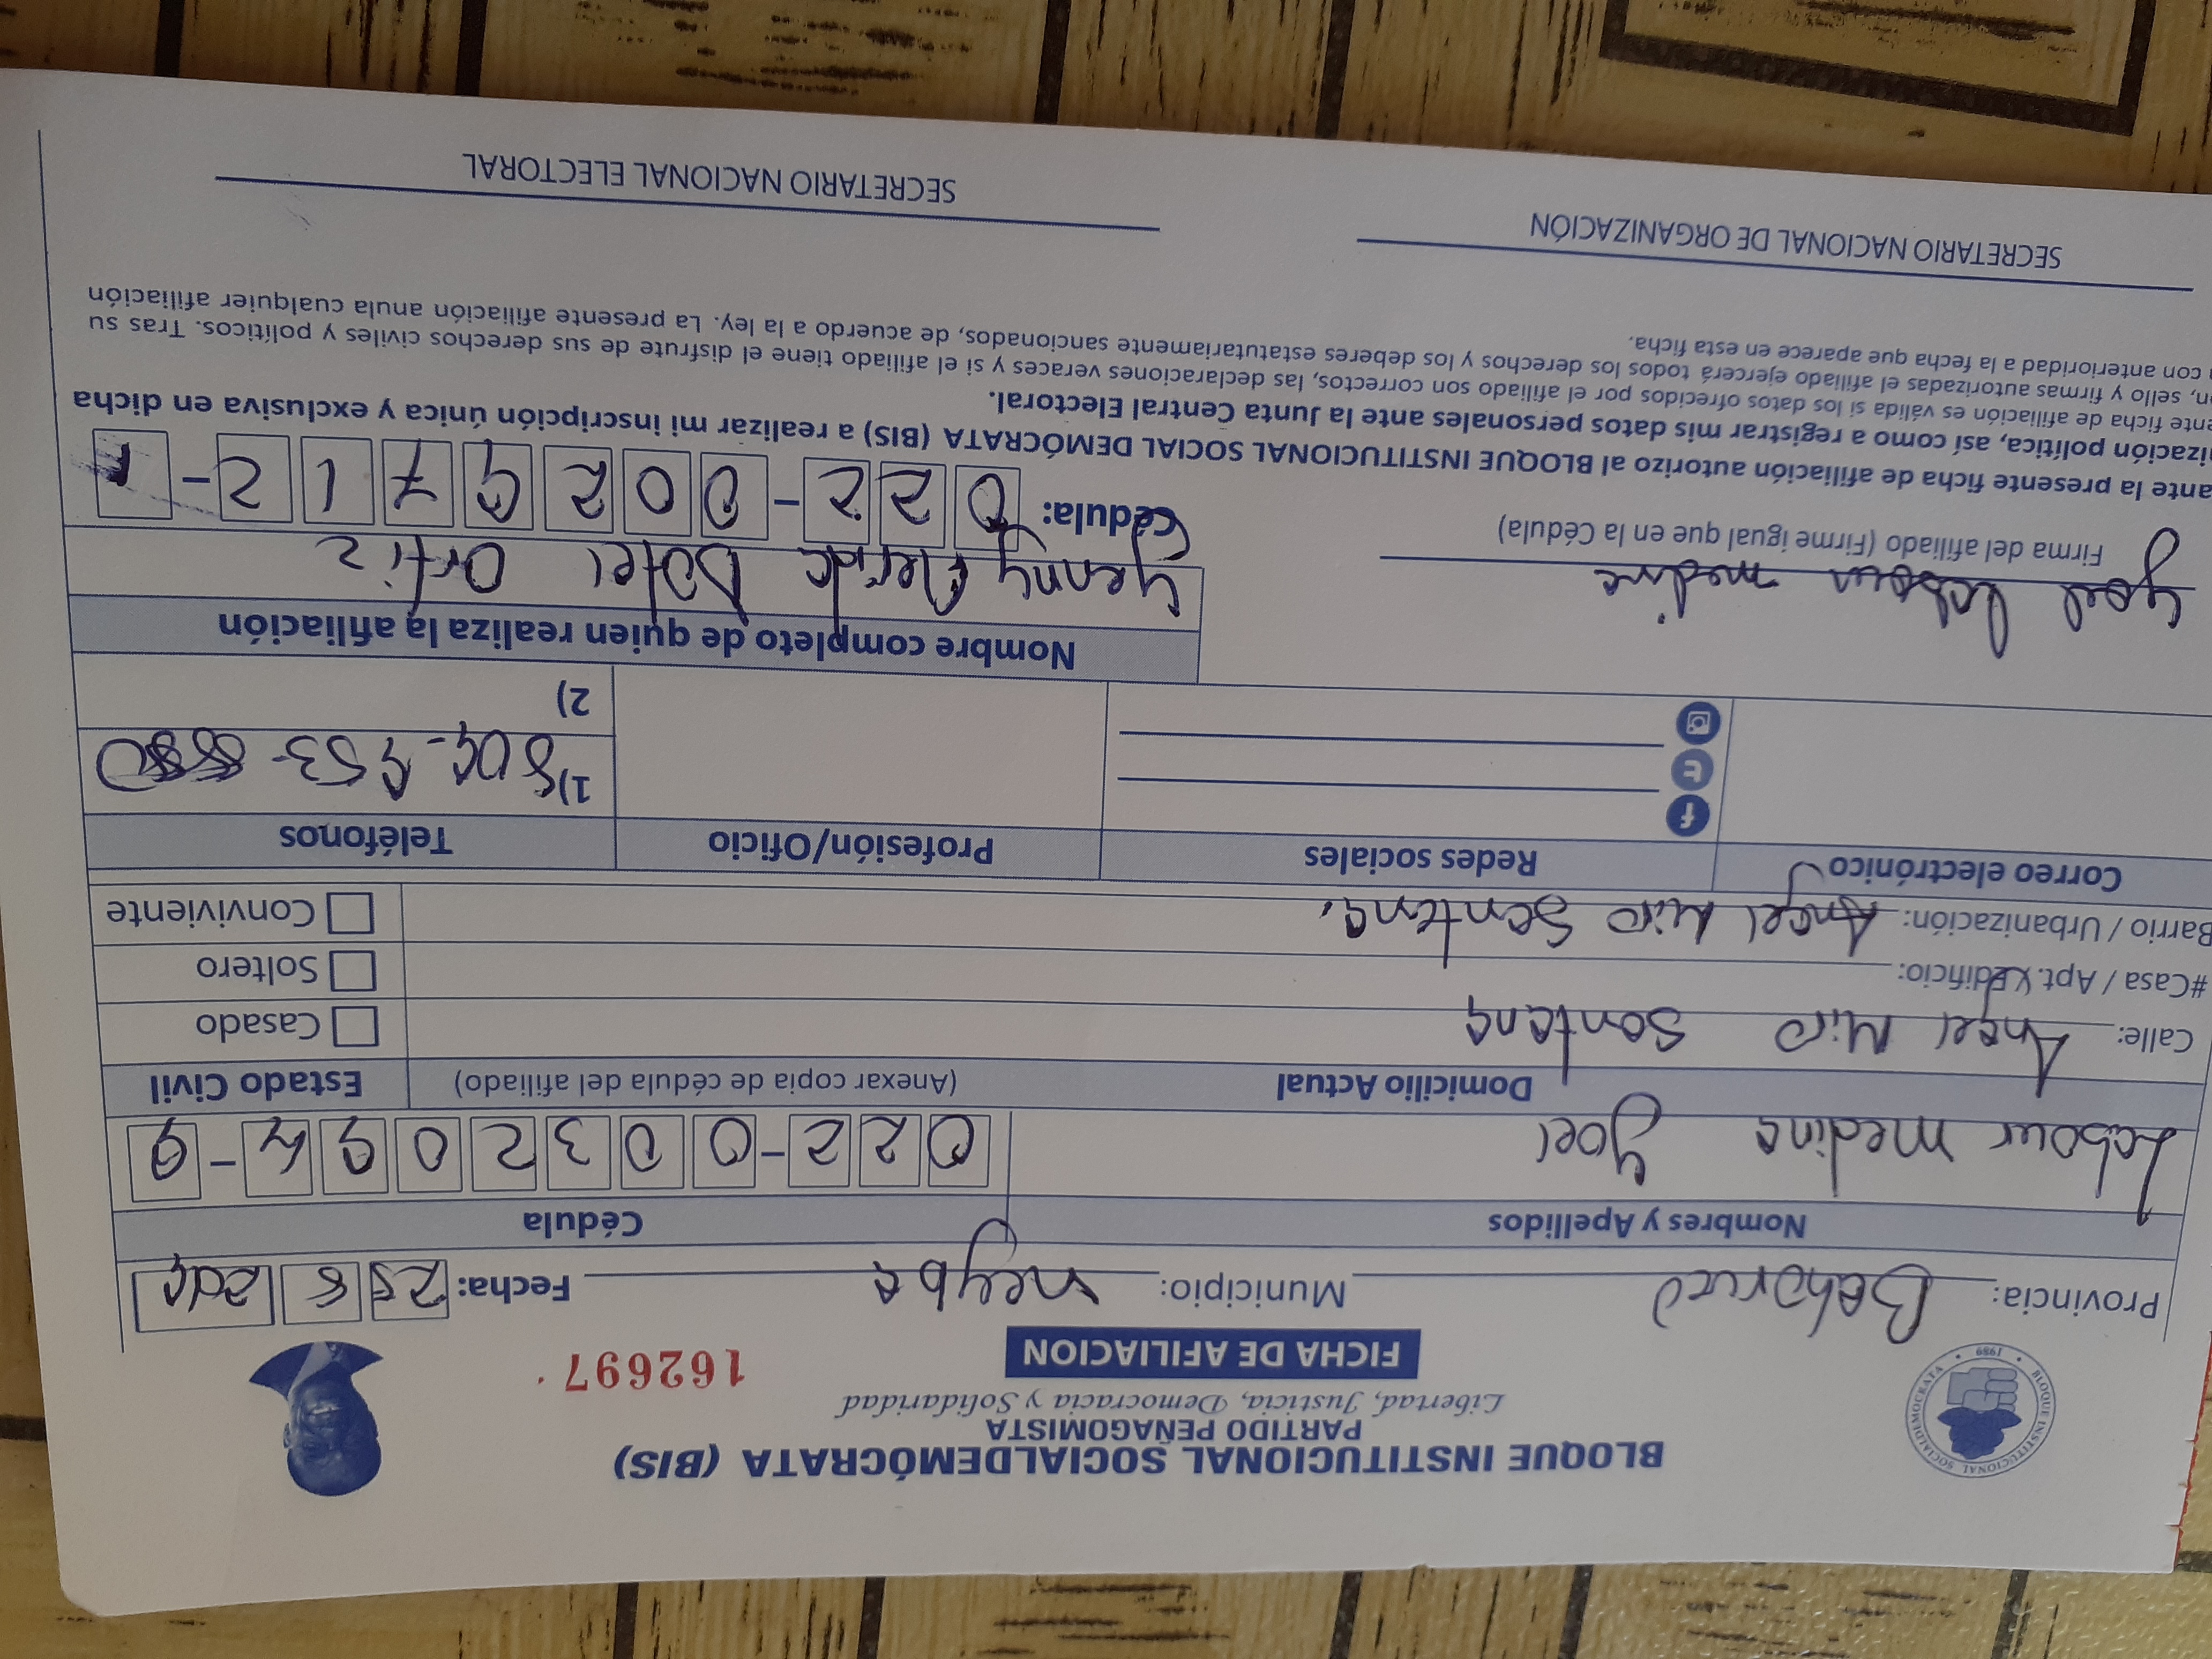 BLOQUE INSTITUCIONAL SOCIALDEMÓCRATA (BIS)
PARTIDO PEÑAGOMISTA
Libertad, Justicia, Democracia y Solidaridad
FICHA DE AFILIACION
162697
BLOQUE INSTITUCIONAL SOCIALDEMOCRATA
1989
Provincia: Bahoruco Municipio: neyba Fecha: 25 8
Nombres y Apellidos Cédula
Labour medina Yoel 022-0032094-9
Domicilio Actual (Anexar copia de cédula del afiliado) Estado Civil
Calle: Angel Miro Santana Casado
#Casa / Apt. Y Edificio: Soltero
Barrio / Urbanización: Angel Miro Santana. Conviviente
Correo electrónico Redes sociales Profesión/Oficio Teléfonos
1) 809-
2)
Nombre completo de quien realiza la afiliación
Yoel Labour medina Yenny Dotel Ortiz
Firma del afiliado (Firme igual que en la Cédula)
Cédula: 022-0029712-1
ante la presente ficha de afiliación autorizo al BLOQUE INSTITUCIONAL SOCIAL DEMÓCRATA (BIS) a realizar mi inscripción única y exclusiva en dicha
nización política, así como a registrar mis datos personales ante la Junta Central Electoral.
ente ficha de afiliación es válida si los datos ofrecidos por el afiliado son correctos, las declaraciones veraces y si el afiliado tiene el disfrute de sus derechos civiles y políticos. Tras su
n, sello y firmas autorizadas el afiliado ejercerá todos los derechos y los deberes estatutariamente sancionados, de acuerdo a la ley. La presente afiliación anula cualquier afiliación
con anterioridad a la fecha que aparece en esta ficha.
SECRETARIO NACIONAL DE ORGANIZACIÓN SECRETARIO NACIONAL ELECTORAL